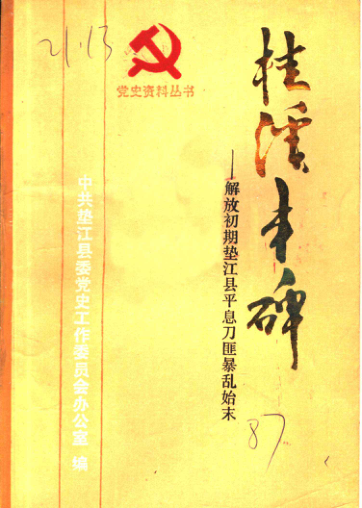 21.13
党史资料丛书
桂溪丰碑
——解放初期垫江县平息刀匪暴乱始末
中共垫江县委党史工作委员会办公室 编
87